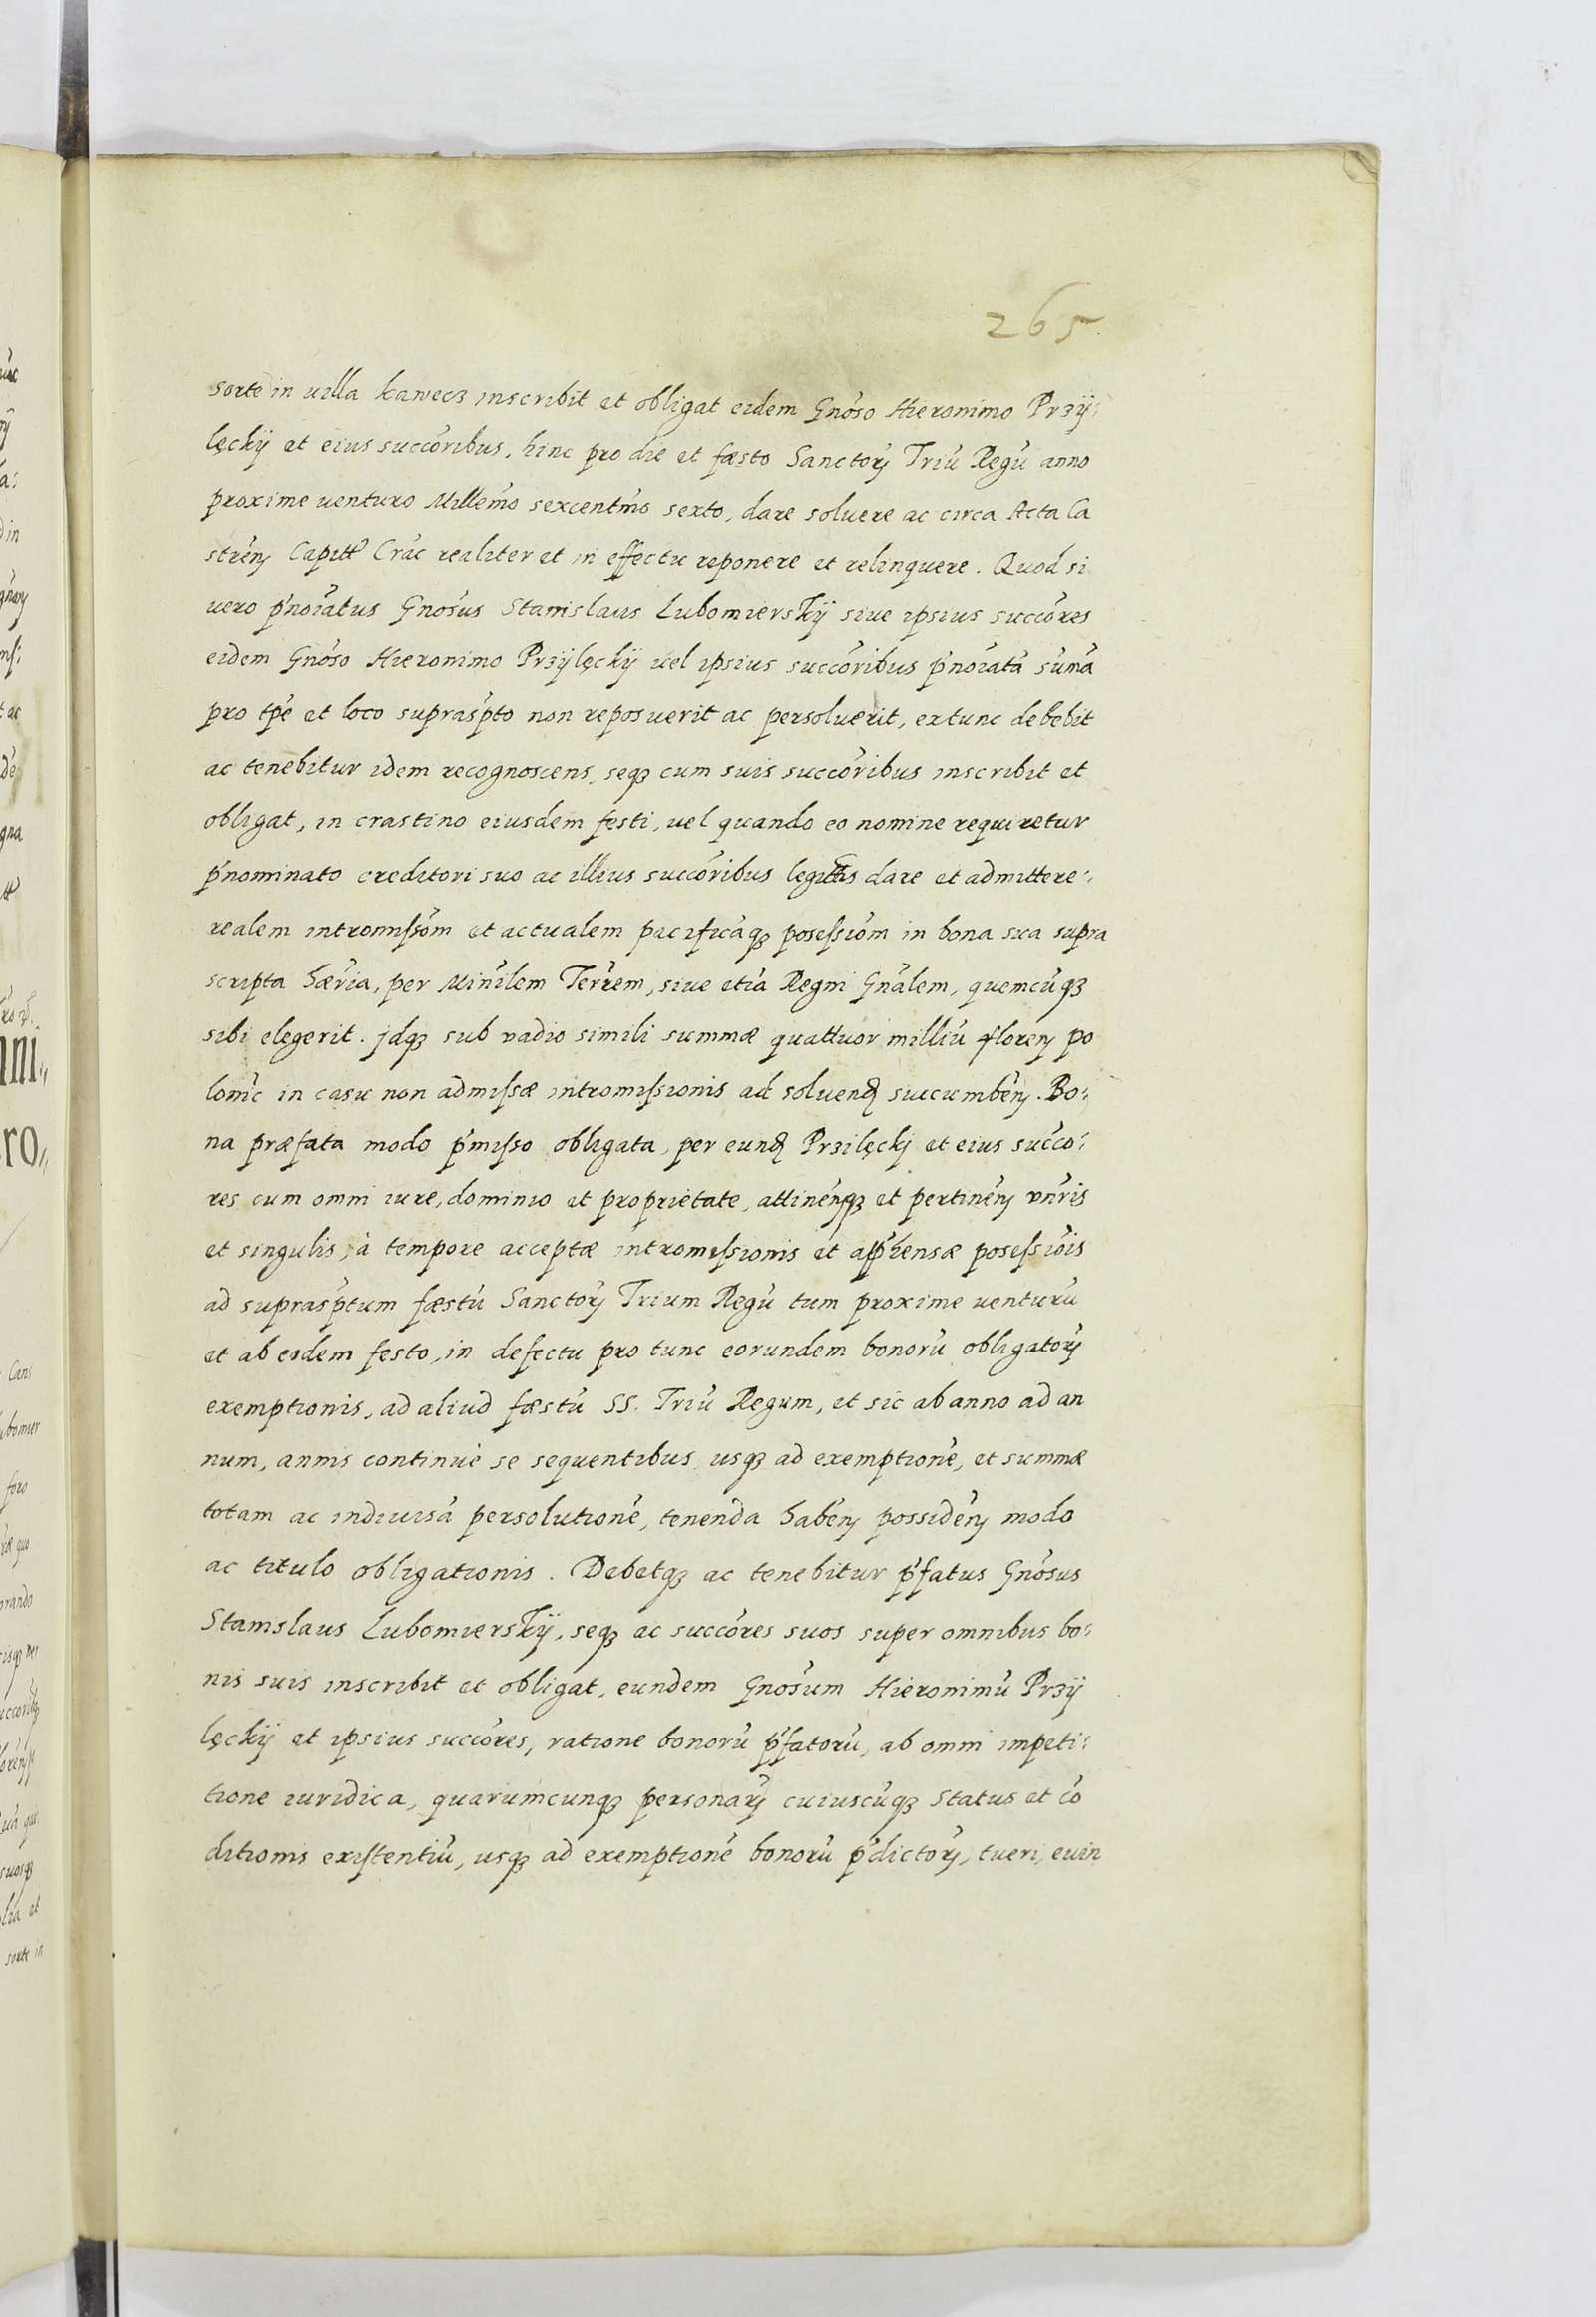 265.
sorte in uilla kawecz inscribit et obligat eidem Gnoso Hieronimo Przÿ:
lęckÿ et eius succoribus, hinc pro die et fæsto Sanctorꝝ Triū Regū anno
proxime venturo Millemo sexcentmo sexto, dare soluere ac circa Acta Ca
streñ Capitt Crac realiter et in effectu reponere et relinquere. Quod si
uero p̄noiatus Gnosus Stanislaus Lubomierskÿ siue ipsius succores
eidem Gnoso Hieronimo Przÿlęckÿ uel ipsius succoribus p̄noiatā sum̄ā
pro tpe et loco suprasp̄to non reposuerit ac persoluerit, extunc debebit
ac tenebitur idem recognoscens, seqꝫ cum suis succoribus inscribit et
obligat, in crastino eiusdem festi, uel quando eo nomine requiretur
p̄nominato creditori suo ac illius succoribus legittis dare et admittere:,
realem intromissom et actualem pacificāqꝫ posessiom in bona sua supra
scripta hæria, per Minilem Terrem, siue etiā Regni Gnalem, quemcūqꝫ
sibi elegerit. jdqꝫ sub vadio simili summæ quattuor milliū floreñ po
lonic in casu non admissæ intromissionis ad soluenꝺ succumbeñ. Bo:
na præfata modo p̄misso obligata, per eunꝺ Przilęckj et eius succo:
res cum omni iure, dominio et proprietate, attineñqꝫ et pertineñ vnris
et singulis, à tempore acceptæ intromissionis et app̄hensæ posessiois
ad suprasp̄tum fæstū Sanctorꝝ Trium Regū tum proxime uenturū
et ab eodem festo, in defectu pro tunc eorundem bonorū obligatorꝝ
exemptionis, ad aliud fæstū SS. Triū Regum, et sic ab anno ad an
num, annis continuè se sequentibus, usqꝫ ad exemptionē, et summæ
totam ac indiuisā persolutionē, tenenda habeñ possideñ modo
ac titulo obligationis. Debetqꝫ ac tenebitur p̄fatus Gnosus
Stanislaus Lubomierskÿ, seqꝫ ac succores suos super omnibus bo:
nis suis inscribit et obligat, eundem Gnosum Hieronimū Przÿ
lęckÿ et ipsius succores, ratione bonorū p̄fatorū, ab omni impeti:
tione iuridica, quarumcunqꝫ personarꝝ cuiuscūqꝫ status et cō
ditionis existentiū, usqꝫ ad exemptionē bonorū p̄dictorꝝ, tueri, euin